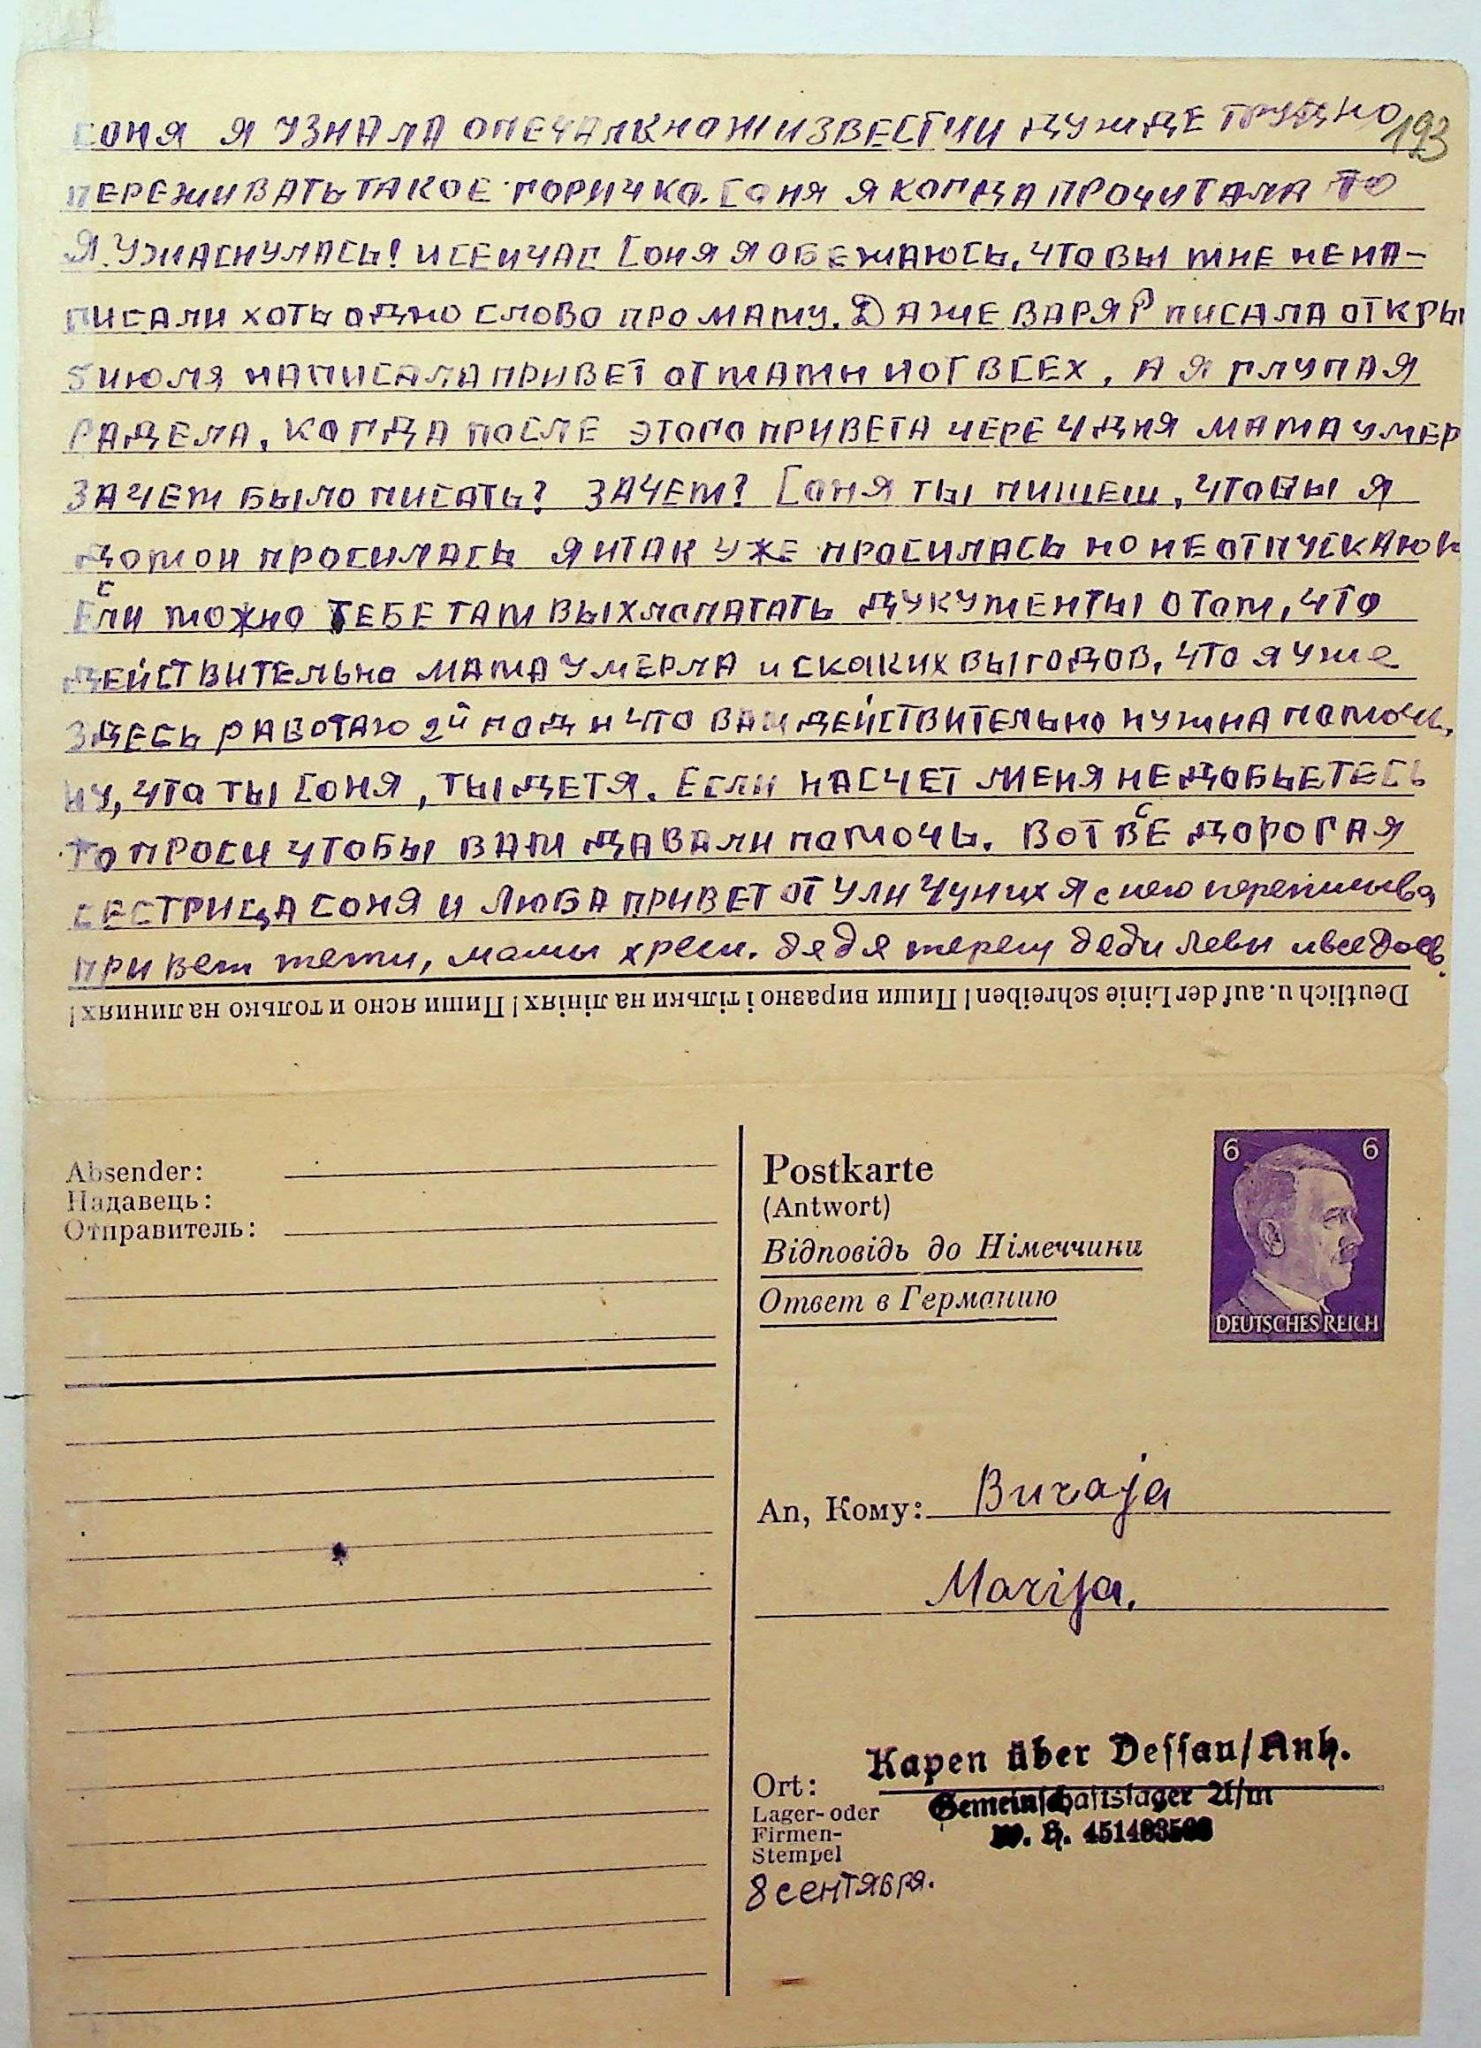 193
СОНЯ Я УЗНАЛА О ПЕЧАЛКНОМ ИЗВЕСТИИ ДУЖДЕ ТРУДНО
ПЕРЕЖИВАТЬ ТАКОЕ ГОРИЧКО. СОНЯ Я КОГДА ПРОЧИТАЛА ТО
Я УЖАСНУЛАСЬ! И СЕИЧАС СОНЯ Я ОБЕЖАЮСЬ, ЧТО ВЫ МНЕ НЕ НА-
ПИСАЛИ ХОТЬ ОДНО СЛОВО ПРО МАМУ. ДАЖЕ ВАРЯ Р ПИСАЛА ОТКРЫ
5 ИЮЛЯ НАПИСАЛА ПРИВЕТ ОТ МАМИ И ОТ ВСЕХ, А Я ГЛУПАЯ
РАДЕЛА, КОГДА ПОСЛЕ ЭТОГО ПРИВЕТА ЧЕРЕ 4 ДНЯ МАМА УМЕР
ЗАЧЕМ БЫЛО ПИСАТЬ? ЗАЧЕМ? СОНЯ ТЫ ПИШЕШ, ЧТОБЫ Я
ДОМОИ ПРОСИЛАСЬ Я И ТАК УЖЕ ПРОСИЛАСЬ НО НЕ ОТПУСКАЮ
ЕСЛИ МОЖНО ТЕБЕ ТАМ ВЫХЛАПАТАТЬ ДУКУМЕНТЫ О ТОМ, ЧТО
ДЕЙСТВИТЕЛЬНО МАМА УМЕРЛА И СКАКИХ ВЫ ГОДОВ, ЧТО Я УЖЕ
ЗДЕСЬ РАБОТАЮ 2й ГОД И ЧТО ВАМ ДЕЙСТВИТЕЛЬНО НУЖНА ПОМОЧЬ,
НУ, ЧТО ТЫ СОНЯ, ТЫ ДЕТЯ. ЕСЛИ НАСЧЕТ МЕНЯ НЕ ДОБЬЕТЕСЬ
ТО ПРОСИ ЧТОБЫ ВАМ ДАВАЛИ ПОМОЧЬ. ВОТ ВСЕ ДОРОГАЯ
СЕСТРИЦА СОНЯ И ЛЮБА ПРИВЕТ ОТ УЛИ ЧУНИХ Я с нею переписыва
привет тети, мамы хресн. дядя терет деди Леви и
Deutlich u. auf der Linie schreiben! Пиши виразно і тільки на лініях! Пиши ясно и только на линиях!
Absender:
Надавець:
Отправитель:
Postkarte
(Antwort)
Відповідь до Німеччини
Ответ в Германию
6 6
DEUTSCHES REICH
An, Кому: Buraja
Marija.
Ort:
Lager- oder
Firmen-
Stempel
Kapen über Dessau/Anh.
Gemeinschaftslager A/m
W. H. 4514
8 сентября.